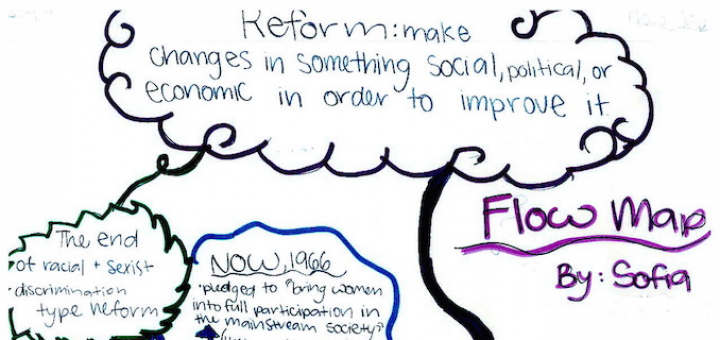 Reform: make
changes in something social, political, or
economic in order to improve it
Flow Map
By: Sofia
The end
of racial + serist
discrimination
type reform
NOW, 1966
•pledged to "bring women
into full participation in
the mainstream society"